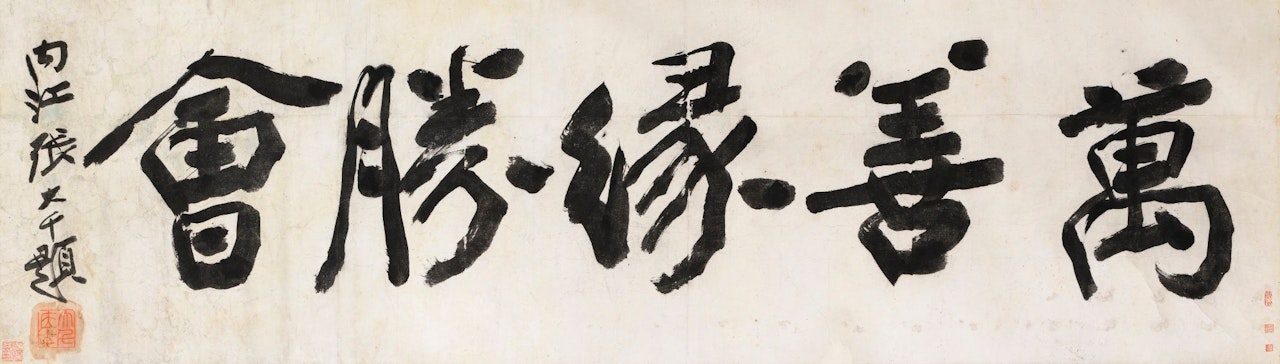 萬善緣勝會
內江張大千題